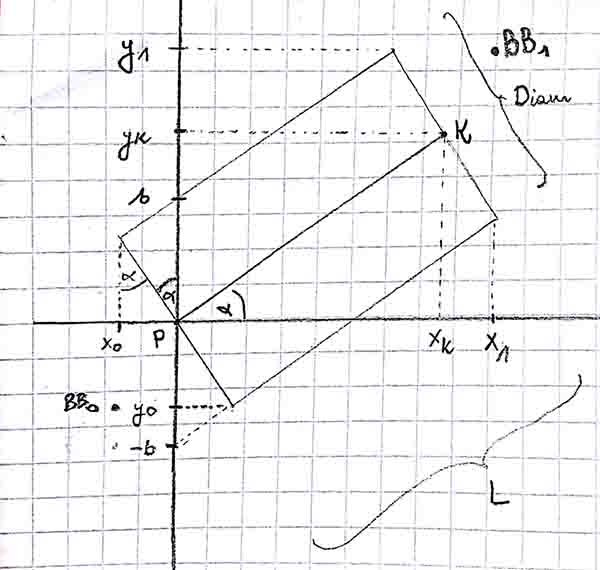 y1
BB1
Diam
yK
K
b
α
α
α
x0
P
xK
x1
BB0
y0
-b
L